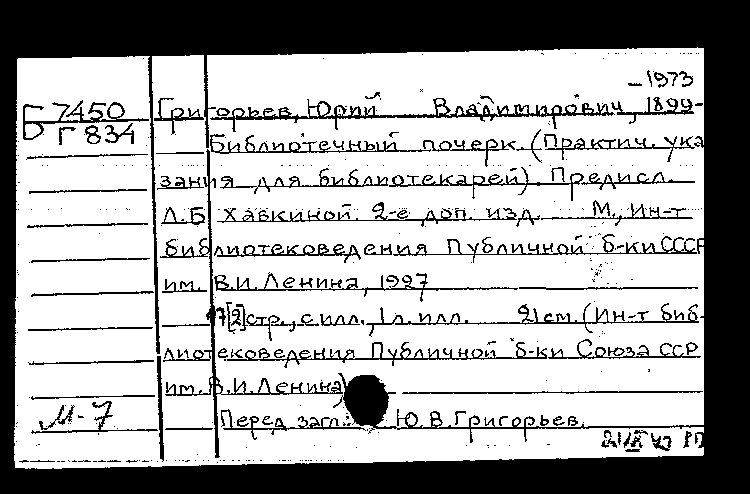 – 1973
Б 7450
Г 834
Григорьев, Юрий Владимирович, 1899-
Библиотечный почерк. (Практич. ука
зания для библиотекарей). Предисл.
Л.Б Хавкиной. 2-е доп. изд. М., Ин-т
библиотековедения Публичной б-ки СССР
им. В.И. Ленина, 1927
[2] стр., с илл., 1 л. илл. 21 см. (Ин-т биб-
лиотековедения Публичной б-ки Союза ССР
им. В.И. Ленина)
Перед загл.: Ю.В. Григорьев.
М-7